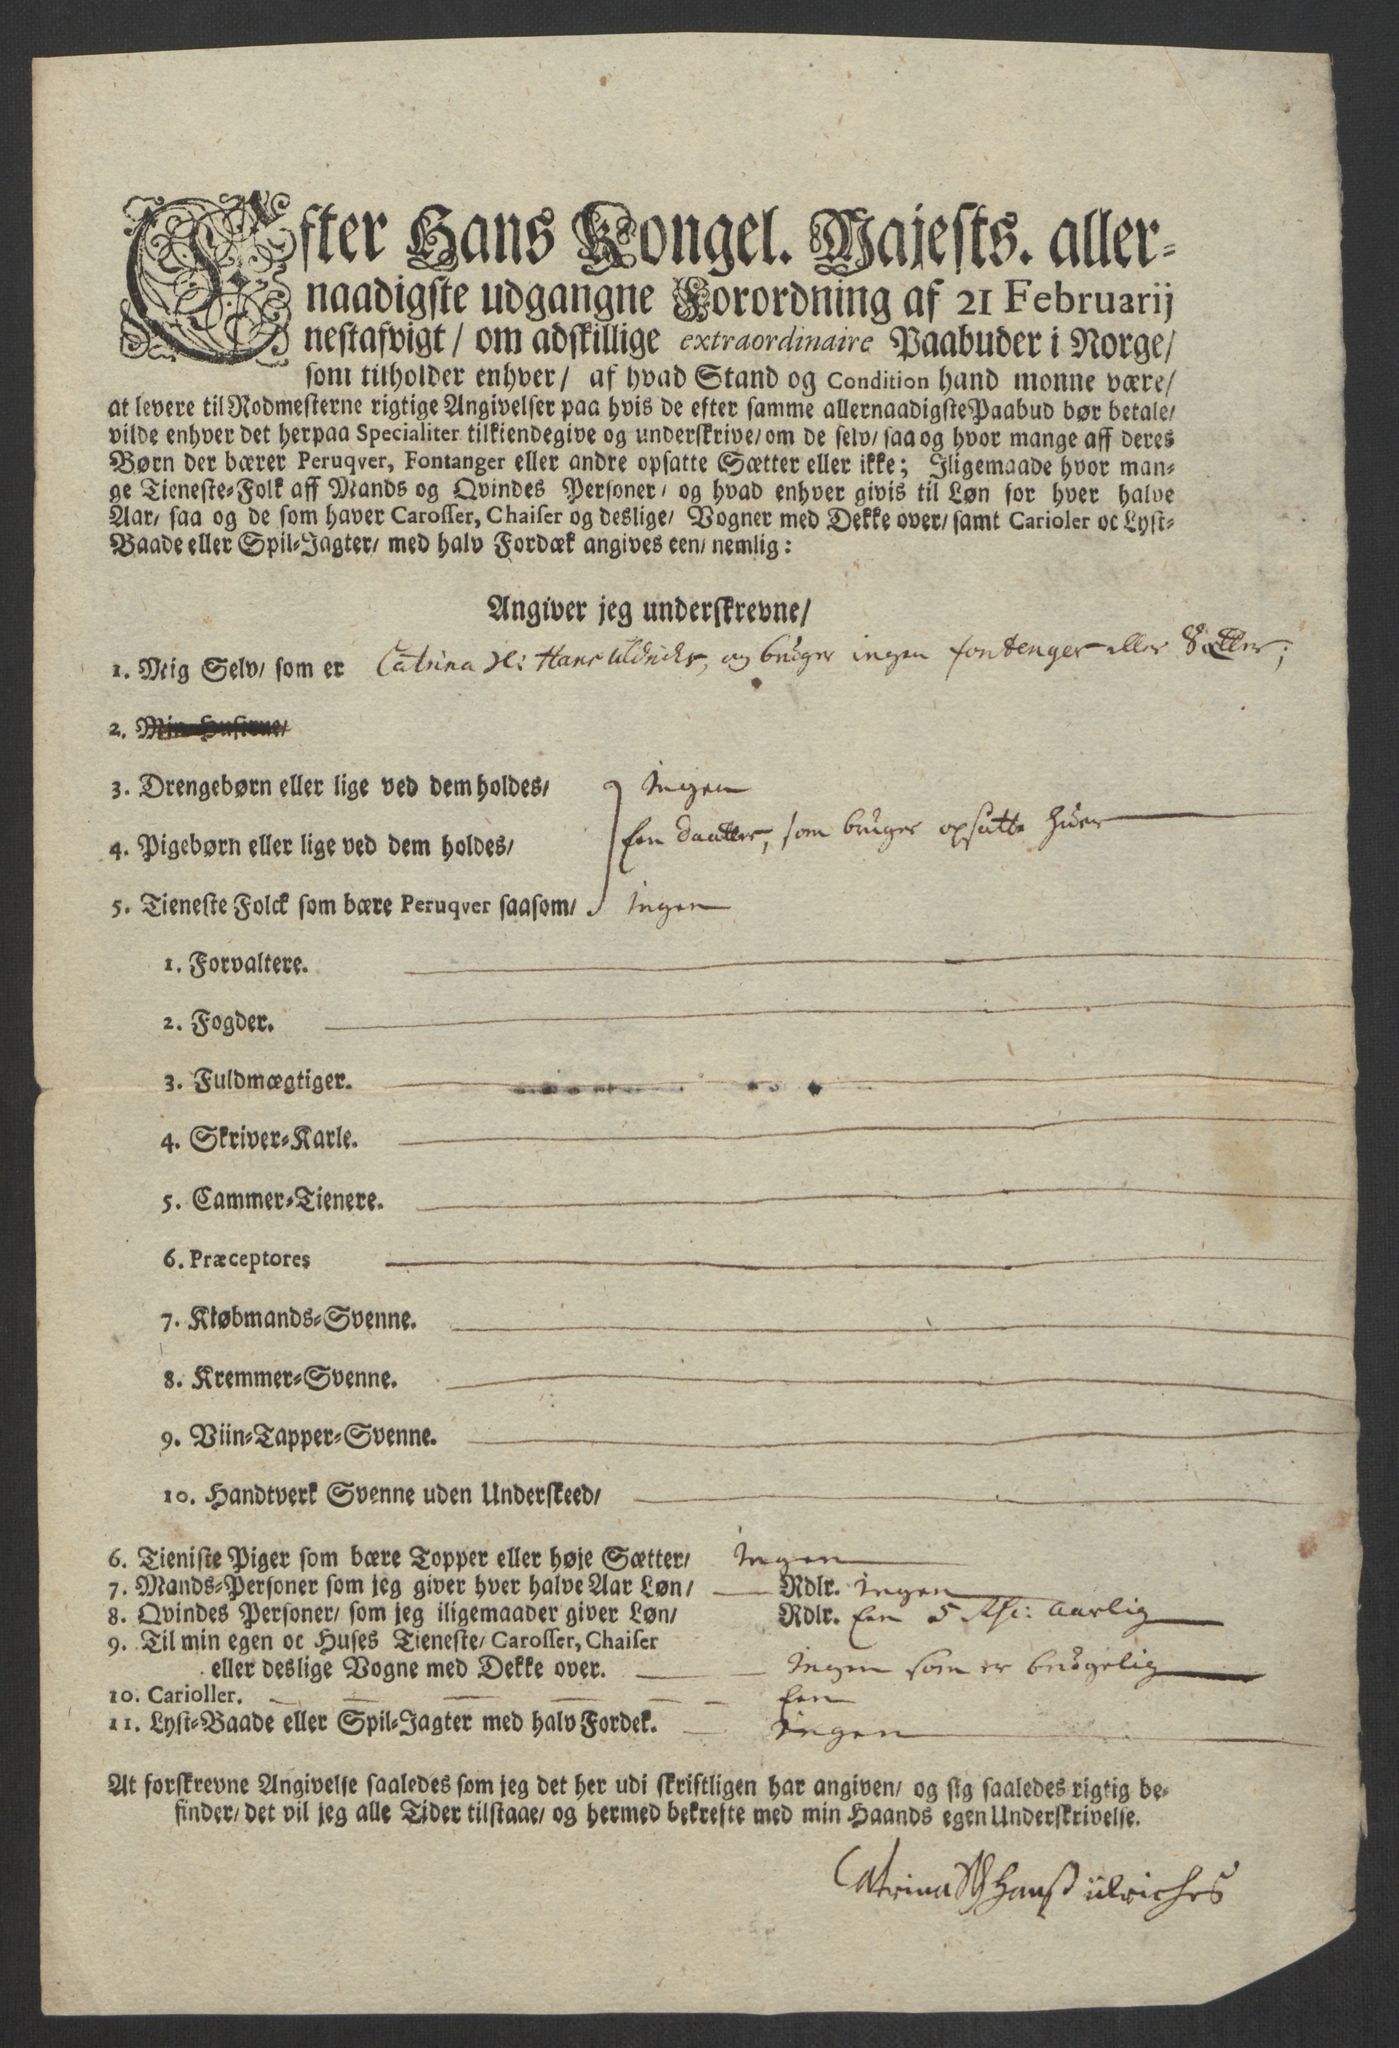 Efter Hans Kongel. Majests. aller-
naadigste udgangne Forordning af 21 Februarij
nestafvigt/ om adskillige extraordinaire Paabuder i Norge/
som tilholder enhver/ af hvad Stand og Condition hand monne være/
at levere til Rodmesterne rigtige Angivelser paa hvis de efter samme allernaadigste Paabud bør betale/
vilde enhver det herpaa Specialiter tilkiendegive og underskrive/ om de selv/ saa og hvor mange aff deres
Børn der bærer Peruqver, Fontanger eller andre opsatte Sætter eller ikke; Iligemaade hvor man-
ge Tieneste-Folk aff Mands og Qvindes Personer/ og hvad enhver givis til Løn for hver halve
Aar/ saa og de som haver Carosser, Chaiser og deslige/ Vogner med Dekke over/ samt Carioler oc Lyst-
Baade eller Spil-Jagter/ med halv Fordæk angives een/ nemlig:
Angiver jeg underskrevne/
1. Mig Selv/ som er Catrina Hans Uldrichs, og bruger ingen fontenger eller Sætter;
2. Min Hustrue/
3. Drengebørn eller lige ved dem holdes/ Ingen
4. Pigebørn eller lige ved dem holdes/ Een daatter, som bruger opsatte Huer
5. Tieneste Folck som bære Peruqver saasom/ Ingen
1. Forvaltere.
2. Fogder.
3. Fuldmægtiger.
4. Skriver-Karle.
5. Cammer-Tienere.
6. Præceptores
7. Kiøbmands-Svenne.
8. Kremmer-Svenne.
9. Viin-Tapper-Svenne.
10. Handtverk Svenne uden Underskeed/
6. Tieniste Piger som bære Topper eller høje Sætter/ Ingen
7. Mands-Personer som jeg giver hver halve Aar Løn/ Rdlr. Ingen
8. Qvindes Personer/ som jeg iligemaader giver Løn/ Rdlr. Een 5 Aarlig
9. Til min egen oc Huses Tieneste/ Carosser, Chaiser
eller deslige Vogne med Dekke over. Ingen som er brugelig
10. Carioller. Een
11. Lyst-Baade eller Spil-Jagter med halv Fordek. Ingen
At forskrevne Angivelse saaledes som jeg det her udi skriftligen har angiven/ og sig saaledes rigtig be-
finder/ det vil jeg alle Tider tilstaae/ og hermed bekrefte med min Haands egen Underskrivelse.
Catrina Hanß ülriches